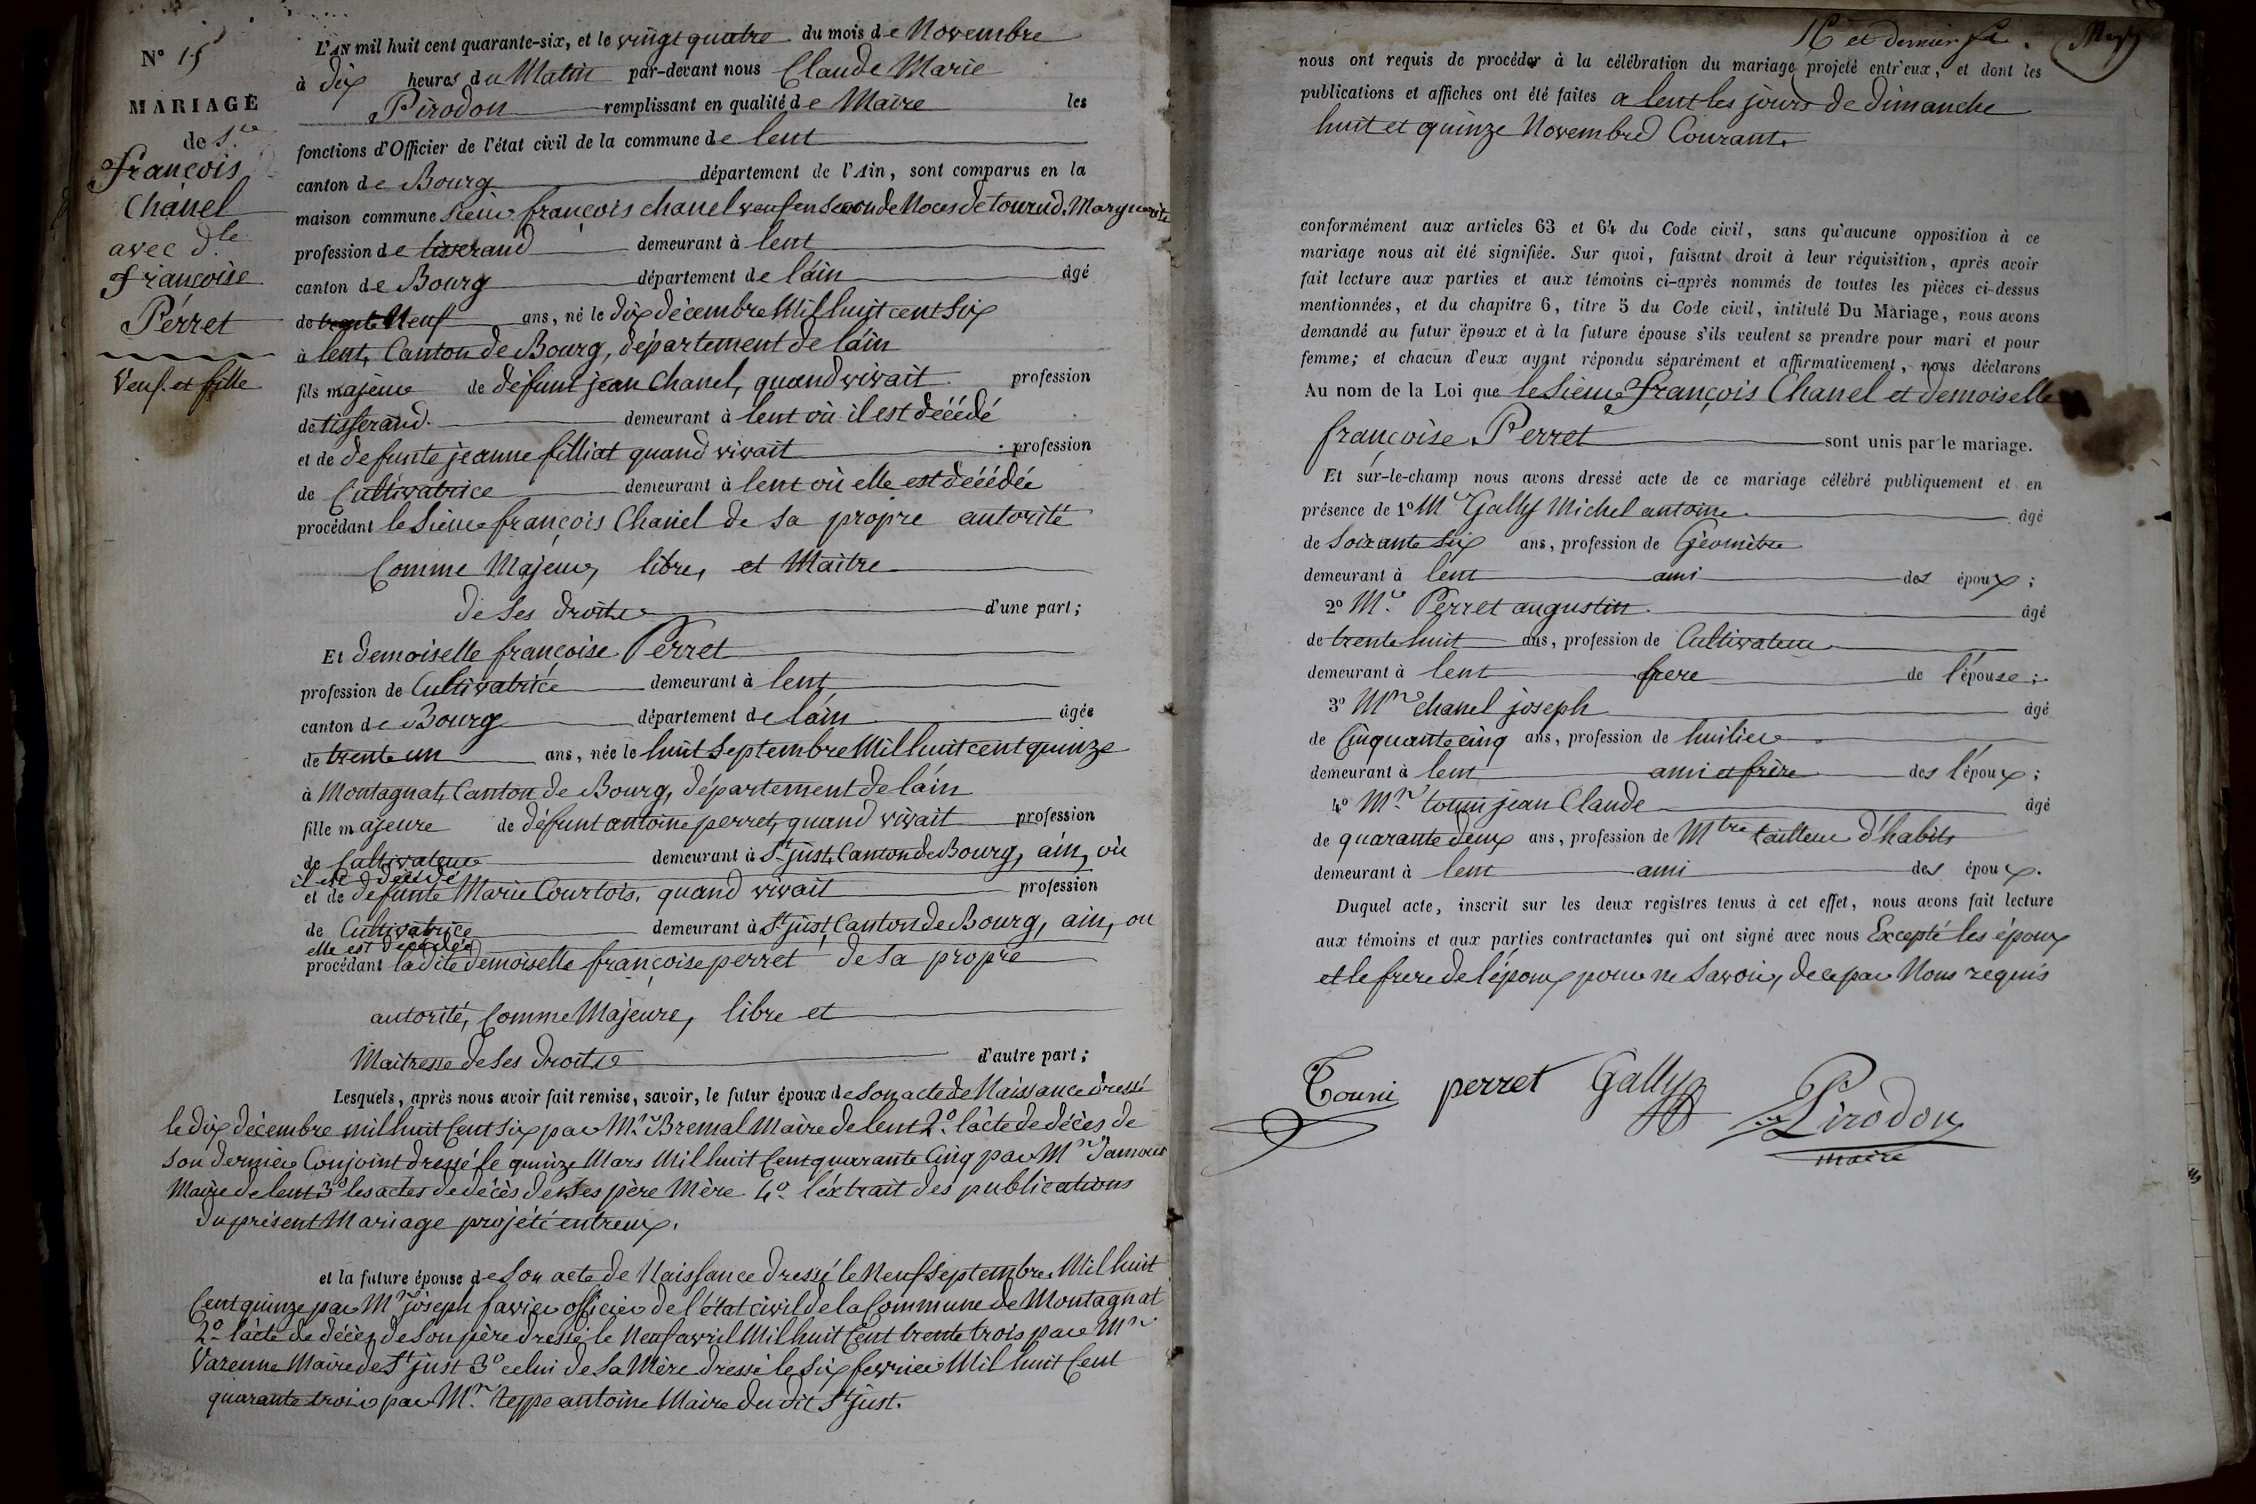 N° 15
MARIAGE
de Sr
François
Chanel
avec dlle
Françoise
Perret
Veuf et fille
L'AN mil huit cent quarante-six, et le vingt quatre du mois de Novembre
à dix heures du Matin par-devant nous Claude Marie
Pirodon remplissant en qualité de Maire les
fonctions d'Officier de l'état civil de la commune de lent
canton de Bourg département de l'Ain, sont comparus en la
maison commune sieur françois chanel veuf en seconde Noces de Marguerite
profession de tisserand demeurant à lent
canton de Bourg département de láin âgé
de trente Neuf ans, né le dix décembre Mil huit cent six
à lent, Canton de Bourg, département de láin
fils majeur de défunt jean Chanel, quand vivait profession
de tisserand. demeurant à lent où il est décédé
et de defunte jeanne filliat quand vivait profession
de Cultivatrice demeurant à lent où elle est décédée
procédant le Sieur françois Chanel de sa propre autorité
Comme Majeur, libre, et Maitre
de ses droits d'une part;
Et demoiselle françoise Perret
profession de Cultivatrice demeurant à lent
canton de Bourg département de láin âgée
de trente un ans, née le huit Septembre Mil huit cent quinze
à Montagnat, Canton de Bourg, département de láin
fille majeure de défunt antoine perret, quand vivait profession
de Cultivateur demeurant à St just, Canton de Bourg, áin, où
il est décédé
et de defunte Marie Courtois, quand vivait profession
de Cultivatrice demeurant à St just, Canton de Bourg, ain, ou
elle est décédée
procédant la dite demoiselle françoise perret de sa propre
autorité, Comme Majeure, libre et
Maitresse de ses droits d'autre part;
Lesquels, après nous avoir fait remise, savoir, le futur époux de son acte de Naissance dressé
le dix décembre mil huit Cent six par Mr Bremal Maire de lent 2º l'acte de décès de
son dernier Conjoint dressé le quinze Mars Mil huit Cent quarante Cinq par Mr
Maire de lent 3º les actes de décès de ses père Mère 4º l'éxtrait des publications
du présent Mariage projété entreux.
et la future épouse de son acte de Naissance dressé le Neuf septembre Mil huit
Cent quinze par Mr joseph favier officier de l'état civil de la Commune de Montagnat
2º l'acte de décès de son père dressé le Neuf avril Mil huit Cent trente trois par Mr
Varenne Maire de St just 3º celui de sa Mère dressé le six fevrier Mil huit Cent
quarante trois par Mr Neppe antoine Maire du dit St just.
16e et dernier ft.
nous ont requis de procéder à la célébration du mariage projeté entr'eux, et dont les
publications et affiches ont été faites a lent les jours de dimanche
huit et quinze Novembre Courant.
conformément aux articles 63 et 64 du Code civil, sans qu'aucune opposition à ce
mariage nous ait été signifiée. Sur quoi, faisant droit à leur réquisition, après avoir
fait lecture aux parties et aux témoins ci-après nommés de toutes les pièces ci-dessus
mentionnées, et du chapitre 6, titre 5 du Code civil, intitulé Du Mariage, nous avons
demandé au futur époux et à la future épouse s'ils veulent se prendre pour mari et pour
femme; et chacun d'eux ayant répondu séparément et affirmativement, nous déclarons
Au nom de la Loi que le Sieur françois Chanel et demoiselle
françoise Perret sont unis par le mariage.
Et sur-le-champ nous avons dressé acte de ce mariage célébré publiquement et en
présence de 1º Mr Gally Michel antoine âgé
de soixante six ans, profession de Géomètre
demeurant à lent ami des époux;
2º Mr Perret augustin âgé
de trente huit ans, profession de Cultivateur
demeurant à lent frere de l'épouse;
3º Mr chanel joseph âgé
de Cinquante cinq ans, profession de huilier
demeurant à lent ami et frère des l'époux;
4º Mr touni jean Claude âgé
de quarante deux ans, profession de Mtre tailleur d'habits
demeurant à lent ami des époux.
Duquel acte, inscrit sur les deux registres tenus à cet effet, nous avons fait lecture
aux témoins et aux parties contractantes qui ont signé avec nous Excepté les époux
et le frere de l'époux pour ne savoir, de ce par Nous requis
Touni perret Gally Pirodon
maire